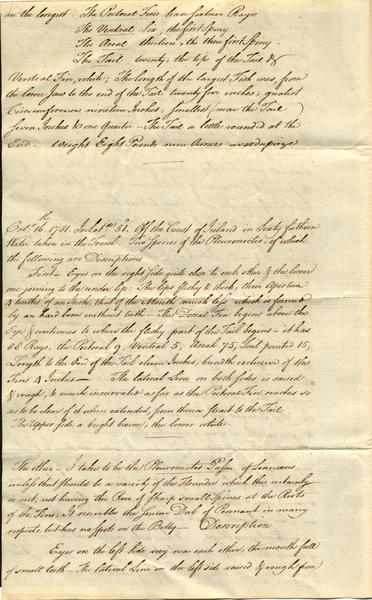 are the longest – The Pectoral Fins has sixteen Rays
The Ventral Six; the first Spiny
The Anal thirteen, the three first Spiny.
The Tail twenty; the top of the Tail &
Ventral Fin, white; The length of the largest Fish was, from
the lower Jaw to the end of the Tail twenty five inches; greatest
Circumference nineteen Inches; smallest/near the Tail
Seven Inches & one Quarter – The Tail a little rounded at the
End. Weight Eight Pounds nine Ounces avordupoize
Octr. 16.th 1781. In Latde. 51. Off the Coast of Ireland in Sixty fathom
Water taken in the Trawl. Two Species of the Pleuronectes – of which
the following are Descriptions
First – Eyes on the right side quite close to each other & the lower
one joining to the under lip – The lips fleshy & thick, their Aperture
4 tenths of an Inch, that of the Mouth much less which is formed
by an hard bone without teeth – The Dorsal Fin begins above the
Eye & continues to where the fleshy part of the Tail begins – it has
88 Rays, the Pectoral 9, Ventral 5, Anal 75, Tail pointed 15,
Length to the End of the Tail eleven Inches, breadth exclusive of the
Fins 4 Inches – The lateral Line on both sides is raised
& rough, & much incurvated as far as the Pectoral Fin reaches so
as to be clear of it when extended, from thence strait to the Tail
The Upper side a bright brown, the lower white.
The other – I take to be the Pleuronectes Passer of Linnæus
unless that should be a variety of the Flounder which this certainly
is not, not having the Row of sharp small Spines at the Roots
of the Fins; It resembles the Smear Dab of Pennant in many
respects, but has no Spots on the Belly – Description
Eyes on the left side very near each other; the mouth full
of small teeth – The lateral Line on the left side raised & rough from